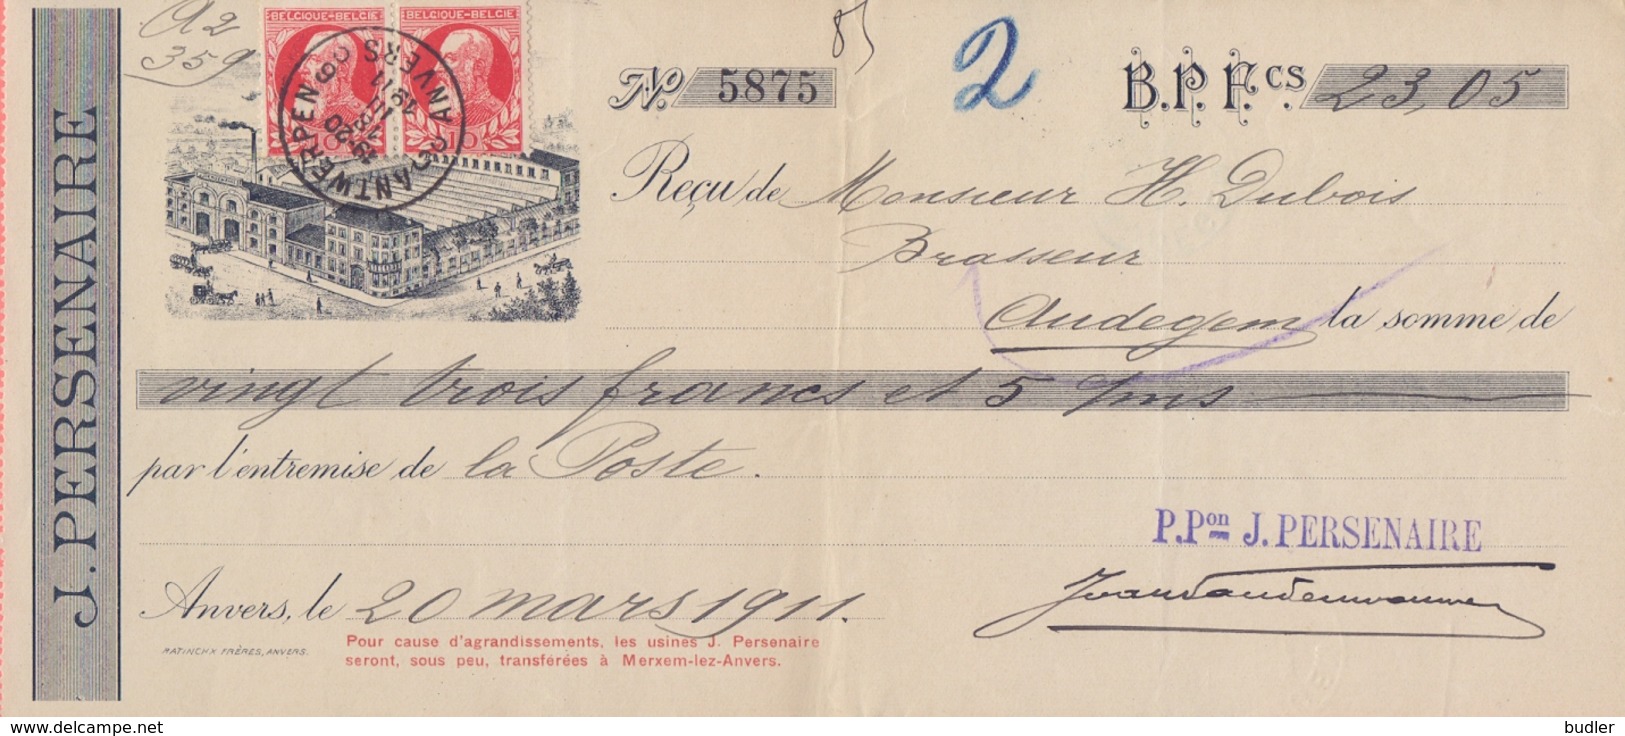 J. PERSENAIRE
A2
359
BELGIQUE-BELGIË BELGIQUE-BELGIË
ANTWERPEN 6
ANVERS 6
1911
No. 5875
85
2
B.P.Fcs. 23,05
Reçu de Monsieur H. Dubois
Brasseur
Audegem la somme de
vingt trois francs et 5 cms
par l'entremise de la Poste.
P.Pon J. PERSENAIRE
Anvers, le 20 mars 1911.
MATINCHX FRÈRES, ANVERS.
Pour cause d'agrandissements, les usines J. Persenaire
seront, sous peu, transférées à Merxem-lez-Anvers.
www.delcampe.net
budler